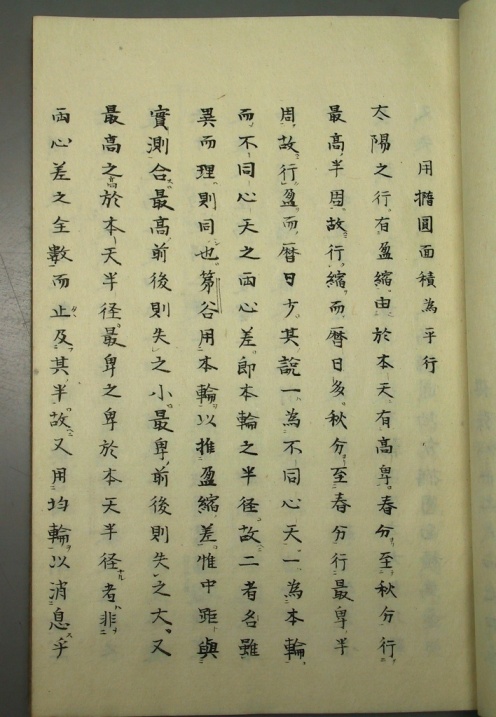 用橢圓面積為平行
太陽之行有盈縮由於本天有高卑春分至秋分行
最高半周故行縮而曆日多秋分至春分行最卑半
周故行盈而曆日少其說一為不同心天一為本輪
而不同心天之兩心差即本輪之半径故二者名雖
異而理則同也第谷用本輪以推盈縮差惟中距與
實測合最高前後則失之小最卑前後則失之大又
最高之高於本天半径最卑之卑於本天半径者非
兩心差之全數而止及其半故又用均輪以消息乎